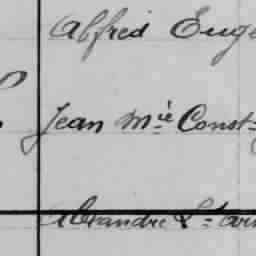 Alfred Euge
Jean Mie Const
Alexandre L